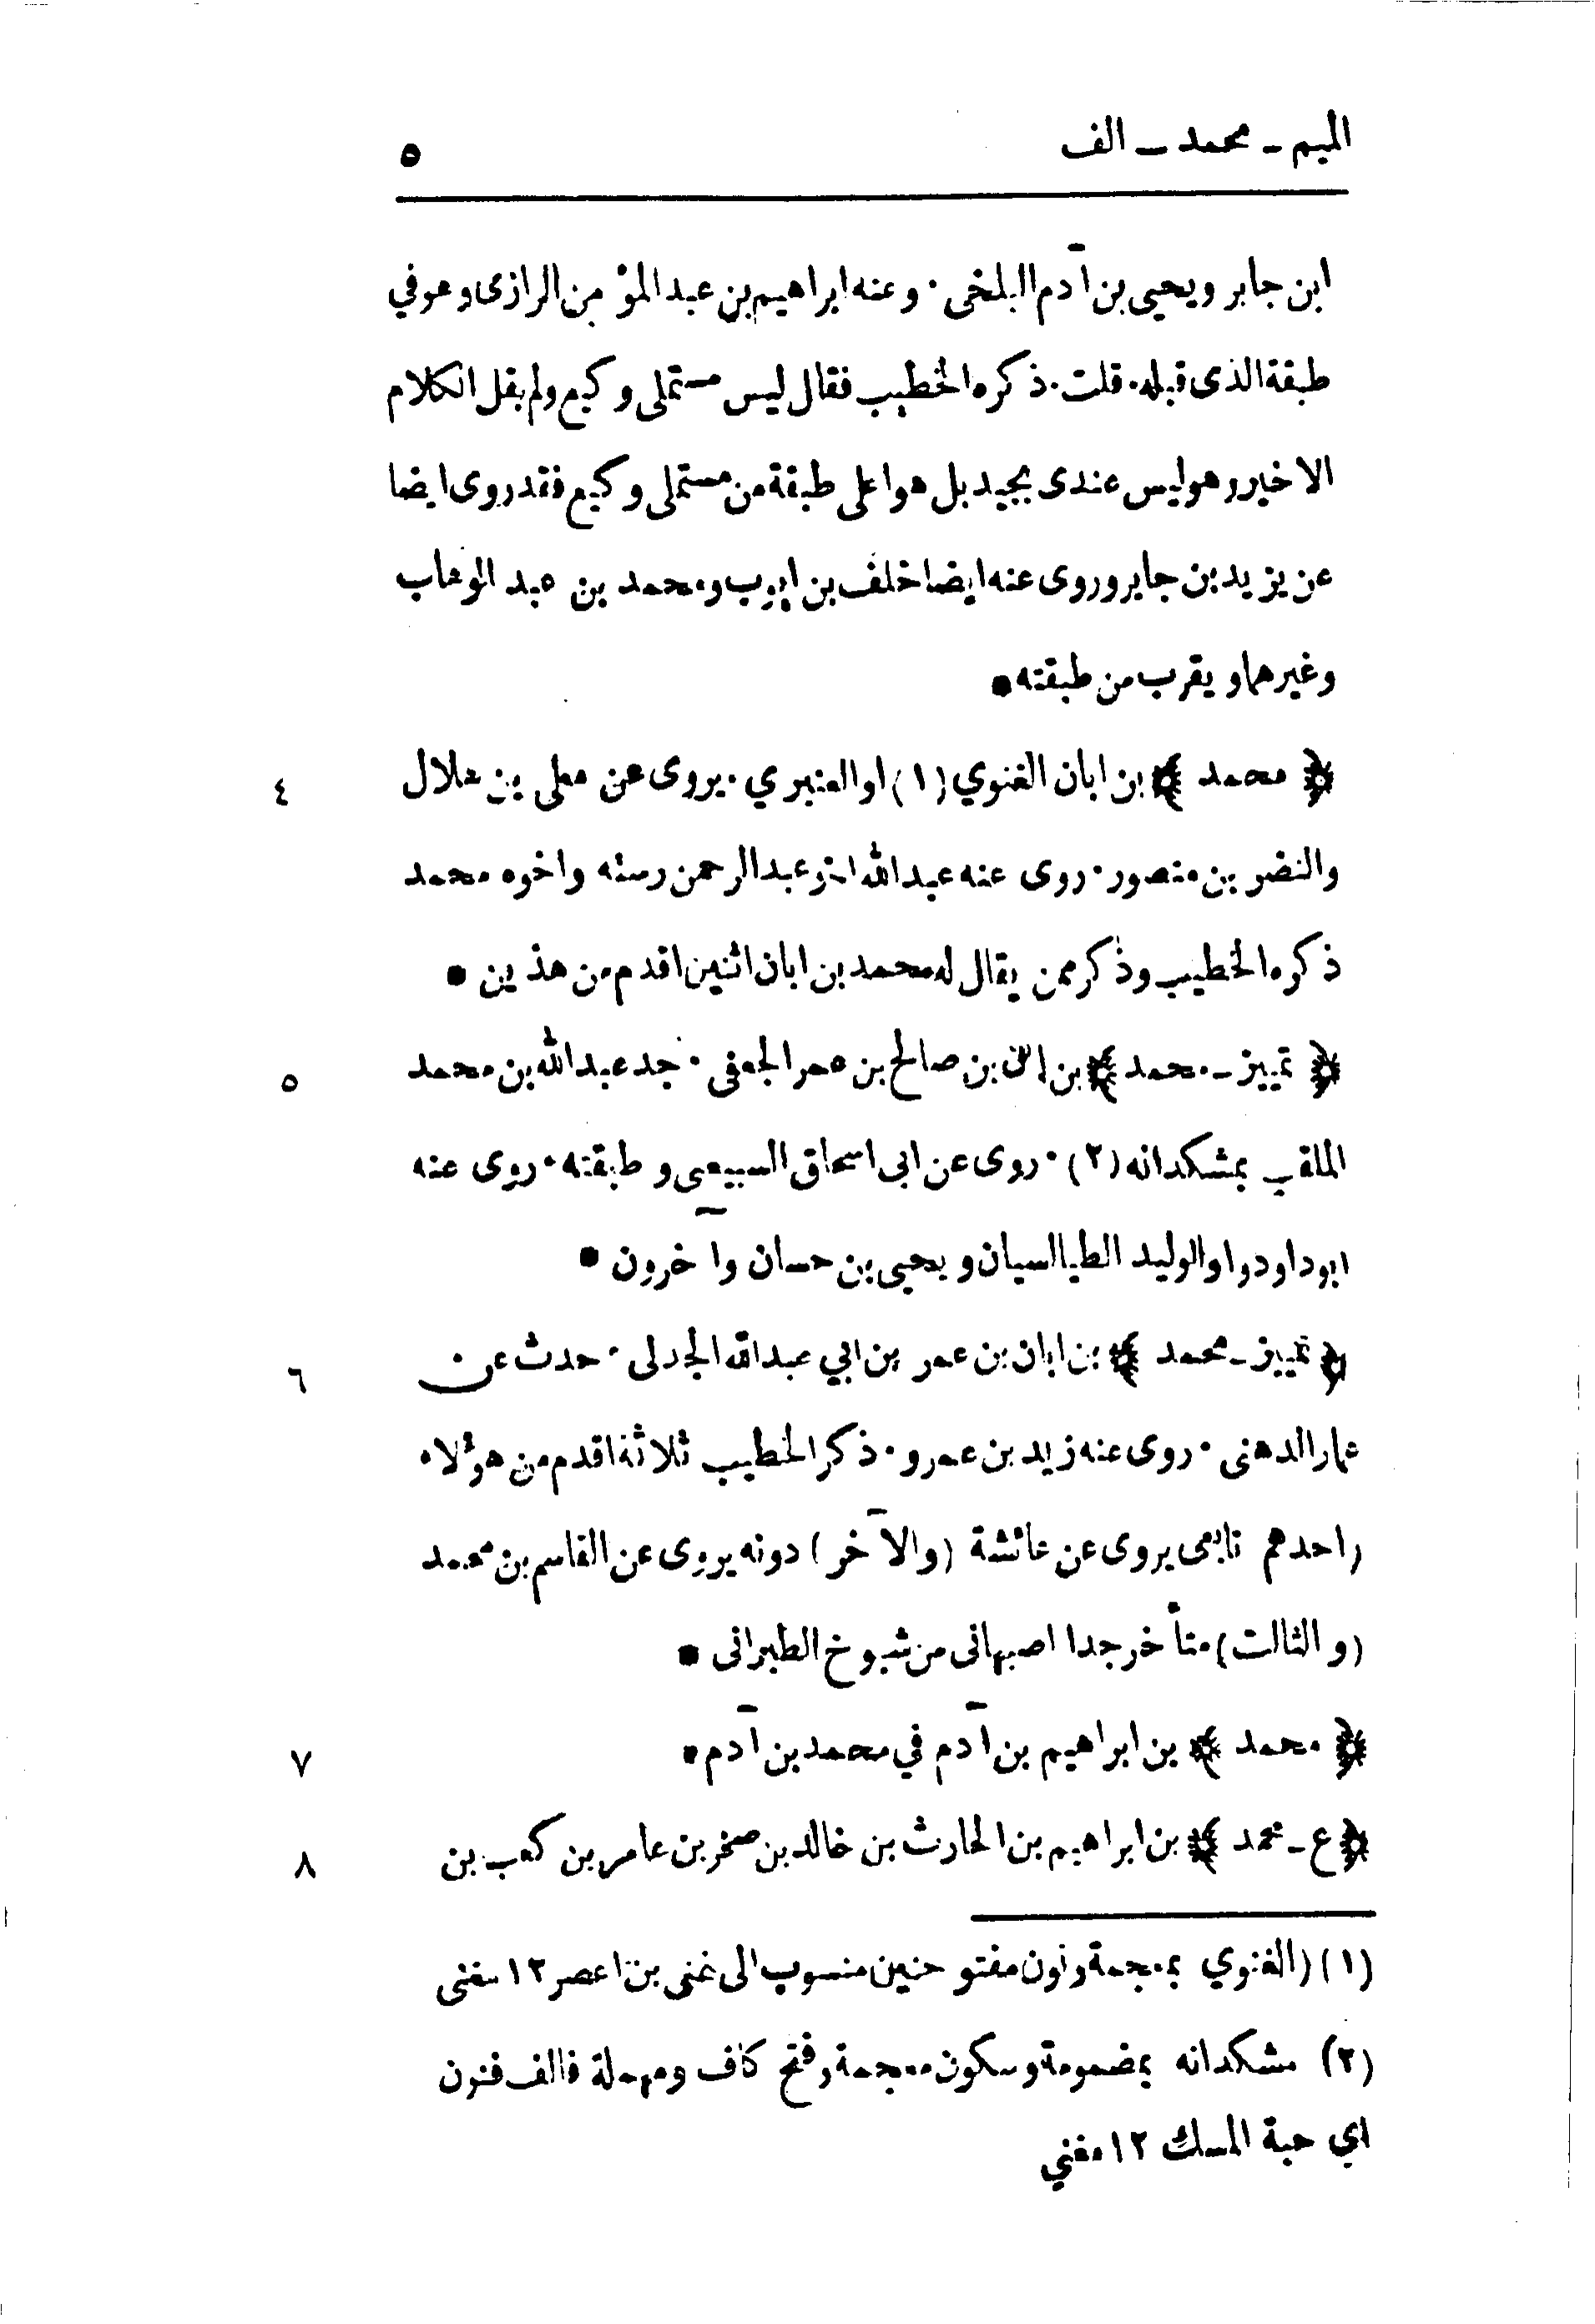 الميم - محمد - الف
٥
ابن جابر ويحيى بن آدم البلخى . وعنه ابراهيم بن عبد المؤمن الرازى وهو في
طبقة الذى قبله . قلت . ذكره الخطيب فقال ليس مستملى وكيع ولم يقل الكلام
الاخير وهو ليس عندى بجيد بل هو اعلى طبقة من مستملى وكيع فقد روى ايضا
عن يزيد بن جابر وروى عنه ايضا خلف بن ايوب ومحمد بن عبد الوهاب
وغيرهما ويقرب من طبقته •
٤
﴿ محمد ﴾ بن ابان الغنوي (١) او العنبري . يروى عن معلى بن هلال
والنضر بن منصور . روى عنه عبد الله بن عبد الرحمن رسته واخوه محمد
ذكره الخطيب وذكر ممن يقال له محمد بن ابان اثنين اقدم من هذين •
٥
﴿ تمييز - محمد ﴾ بن ابان بن صالح بن عمر الجعفى . جد عبد الله بن محمد
الملقب بمشكدانه (٢) . روى عن ابى اسحاق السبيعى وطبقته . روى عنه
ابو داود وابو الوليد الطيالسيان ويحيى بن حسان وآخرون •
٦
﴿ تمييز - محمد ﴾ بن ابان بن عمر بن ابي عبد الله الجدلى . حدث عن
عمار الدهنى . روى عنه زيد بن عمرو . ذكر الخطيب ثلاثة اقدم من هؤلاء
(احدهم تابعى يروى عن عائشة (والآخر) دونه يروى عن القاسم بن محمد
(والثالث) متأخر جدا اصبهانى من شيوخ الطبرانى •
٧
﴿ محمد ﴾ بن ابراهيم بن آدم في محمد بن آدم •
٨
﴿ ع - محمد ﴾ بن ابراهيم بن الحارث بن خالد بن صخر بن عامر بن كعب بن
(١) (الغنوي بمعجمة ونون مفتوحتين منسوب الى غنى بن اعصر ١٢ مغنى
(٢) مشكدانه بمضمومة وسكون معجمة وفتح كاف ومهملة فالف فنون
اي حبة المسك ١٢ مغني